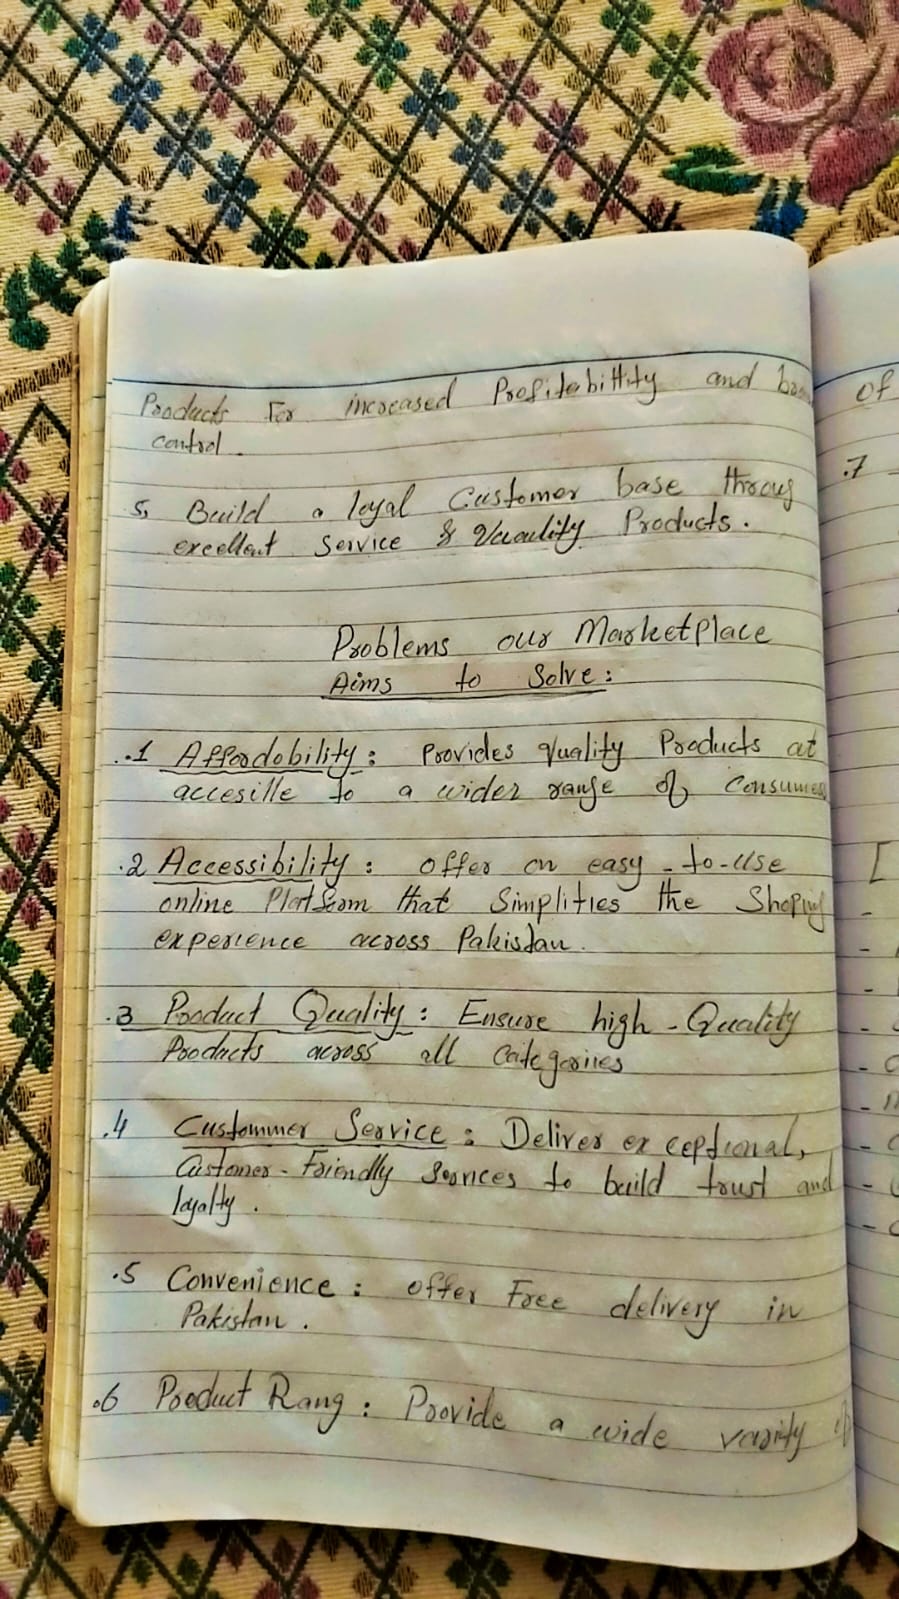 Products For increased Profitabittity and
control.
5, Build a loyal Customer base throug
excellent Service & Products.
Problems our Marketplace
Aims to Solve:
.1 Affordobility: Provides quality Products at
accesille to a wider range of Consumers
.2 Accessibility: offer an easy-to-use
online Platform that Simplities the Shoping
experience across Pakistan.
.3 Product Quality: Ensure high-Quality
Products across all Categories
.4 Custommer Service: Deliver exceptional,
Customer-Friendly Services to build trust and
loyalty.
.5 Convenience: offer Free delivery in
Pakistan.
.6 Product Rang: Provide a wide varity of
of
.7